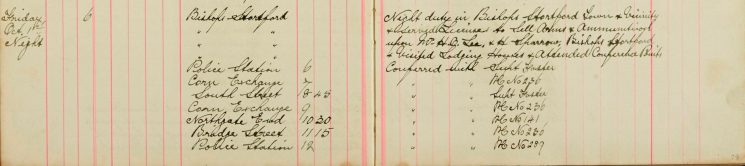 Friday 6 Bishops Stortford Night duty in Bishops Stortford Town & Vicinity
Oct, 7th " " & served License to Sell Arms & Ammunition
Night " " upon Mr H.B. Lea, & H. Sparrow, Bishops Stortford
" " & Visited Lodging Houses & Attended Conference Points
Police Station 6 Conferred with Supt Foster
Corn Exchange 7 " " PC No 236
South Street 8 45 " " Supt Foster
Corn Exchange 9 " " PC No 236
Northgate End 10 30 " " PC No 141,
Bridge Street 11 15 " " PC No 230
Police Station 12 " " PC No 289